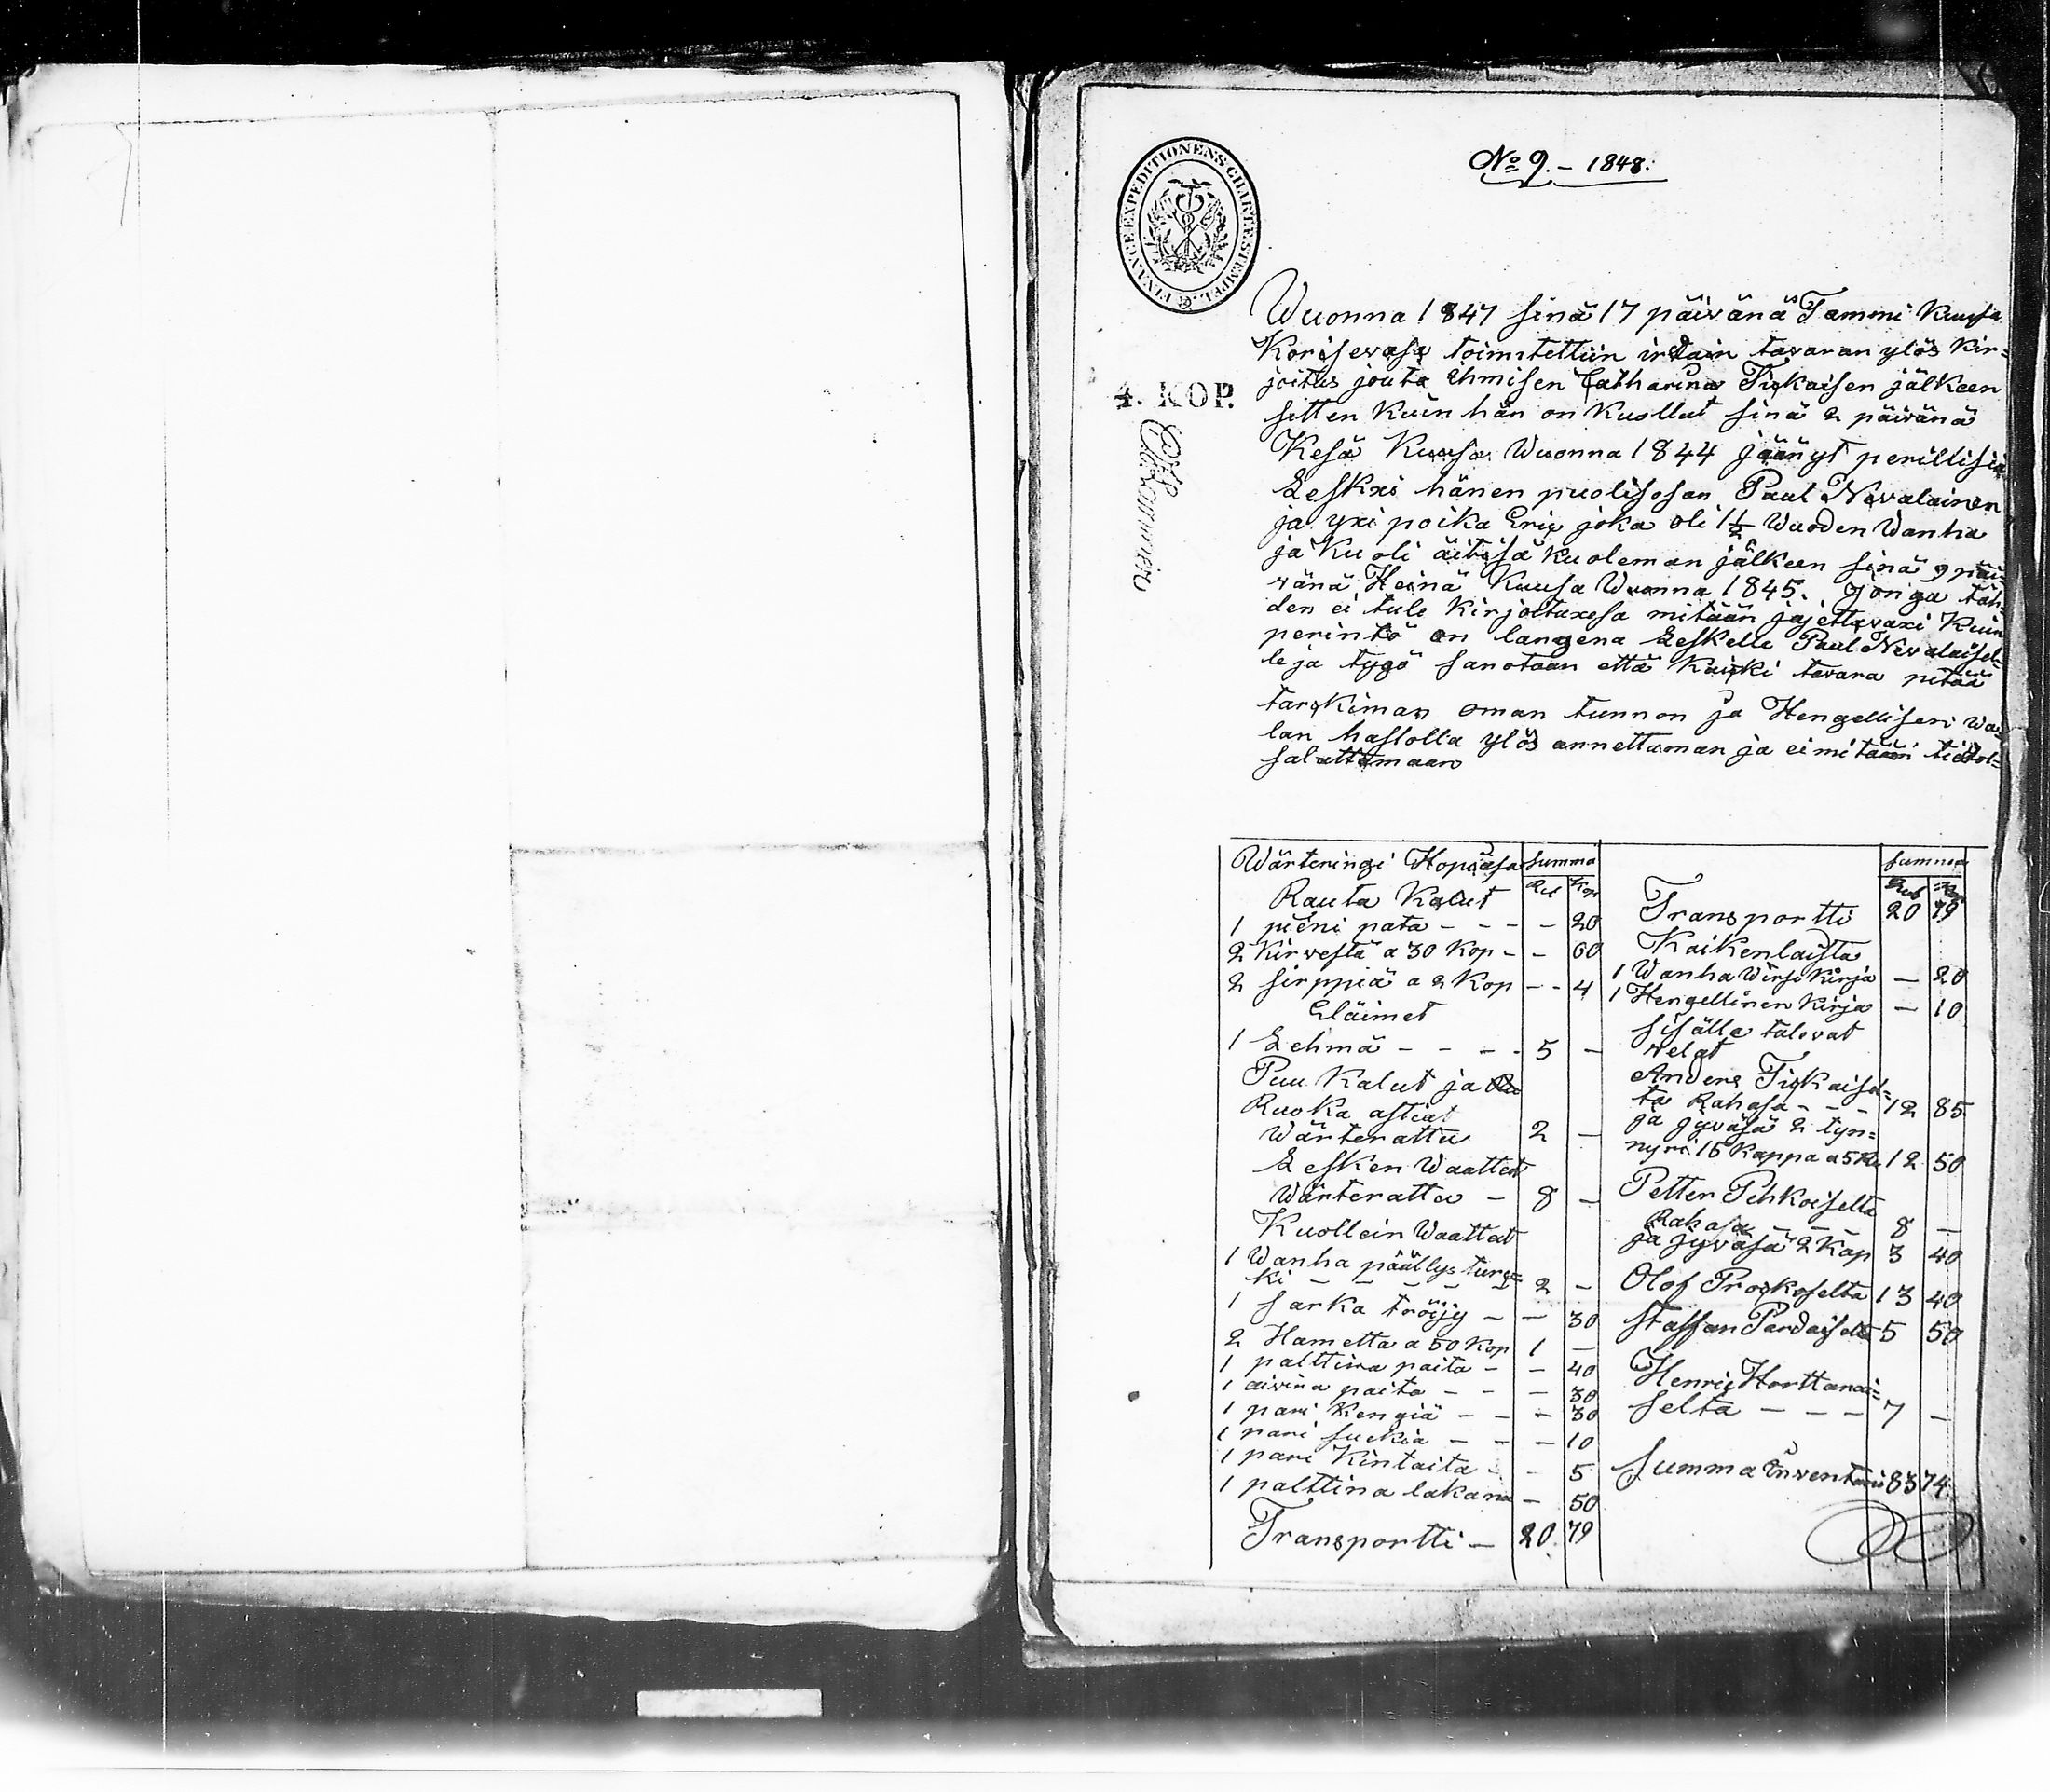 FINANCE EXPEDITIONENS CHARTÆ STEMPEL.
No 9. – 1848.
4. KOP.
Wuonna 1847 sinä 17 päivänä Tammi Kuusa
Korisevasa toimitettiin irdain tavaran ylös kir=
joitus jouto Ihmisen Catharina Tiskaisen jälkeen
sitten kuin hän on kuollut sinä 2 päivänä
Kesä Kuusa Wuonna 1844 jäänyt perillisiä
Leskxi hänen puolisosan Paul Nevalainen
ja yxi poika Eric joka oli 1½ Wuoden Wanha
ja kuoli äitisä kuoleman jälkeen sinä 9 päi=
vänä Heinä Kuusa Wuonna 1845. Jonga täh=
den ei tule kirjoituxesa mitään jajettavaxi kuin
perintö on langena Leskelle Paul Nevalaisel=
le ja tygö sanotaan että kaicki tavara pitää
tarckiman oman tunnon ja Hengellisen wa=
lan hastolla ylös annettaman ja ei mitään
salattamaan
Wärteringi Hopiasa Summa
Rub Kop
Rauta Kalut
1 pieni pata – – – – 20
2 Kirvestä a 30 Kop – – 60
2 sirppiä a 2 Kop – – 4
Eläimet
1 Lehmä – – – – 5 –
Puu Kalut ja
Ruoka astiat
Wärterattu 2 –
Lesken Waatteet
Wärterattu – 8 –
Kuollein Waattet
1 Wanha päällys turc=
ki – – – – – 2 –
1 sarka tröijy – – 30
2 Hametta a 50 Kop 1 –
1 palttina paita – – 40
1 aivina paita – – – 30
1 pari Kengiä – – – 30
1 pari suckia – – – 10
1 pari Kintaita – – 5
1 palttina lakana – 50
Transportti – 20. 79
Summa
Rub Kop
Transportti 20 79
Kaikenlaista
1 Wanha Wirsi Kirja – 20
1 Hengellinen Kirja – 10
sisälle tulevat
velat
Anders Tiskaisel=
ta Rahasa – – – 12 85
ja jyväsä 2 tyn=
nyri 15 Kappa a 5 Ru 12 50
Petter Pihkoiselta
Rahasa – – – 8 –
ja jyväsä 2 Kap 3 40
Olof Proskoselta 13 40
Staffan Pardaiselta 5 50
Henric Horttanai=
selta – – – 7 –
Summa Inventarii 83 74.